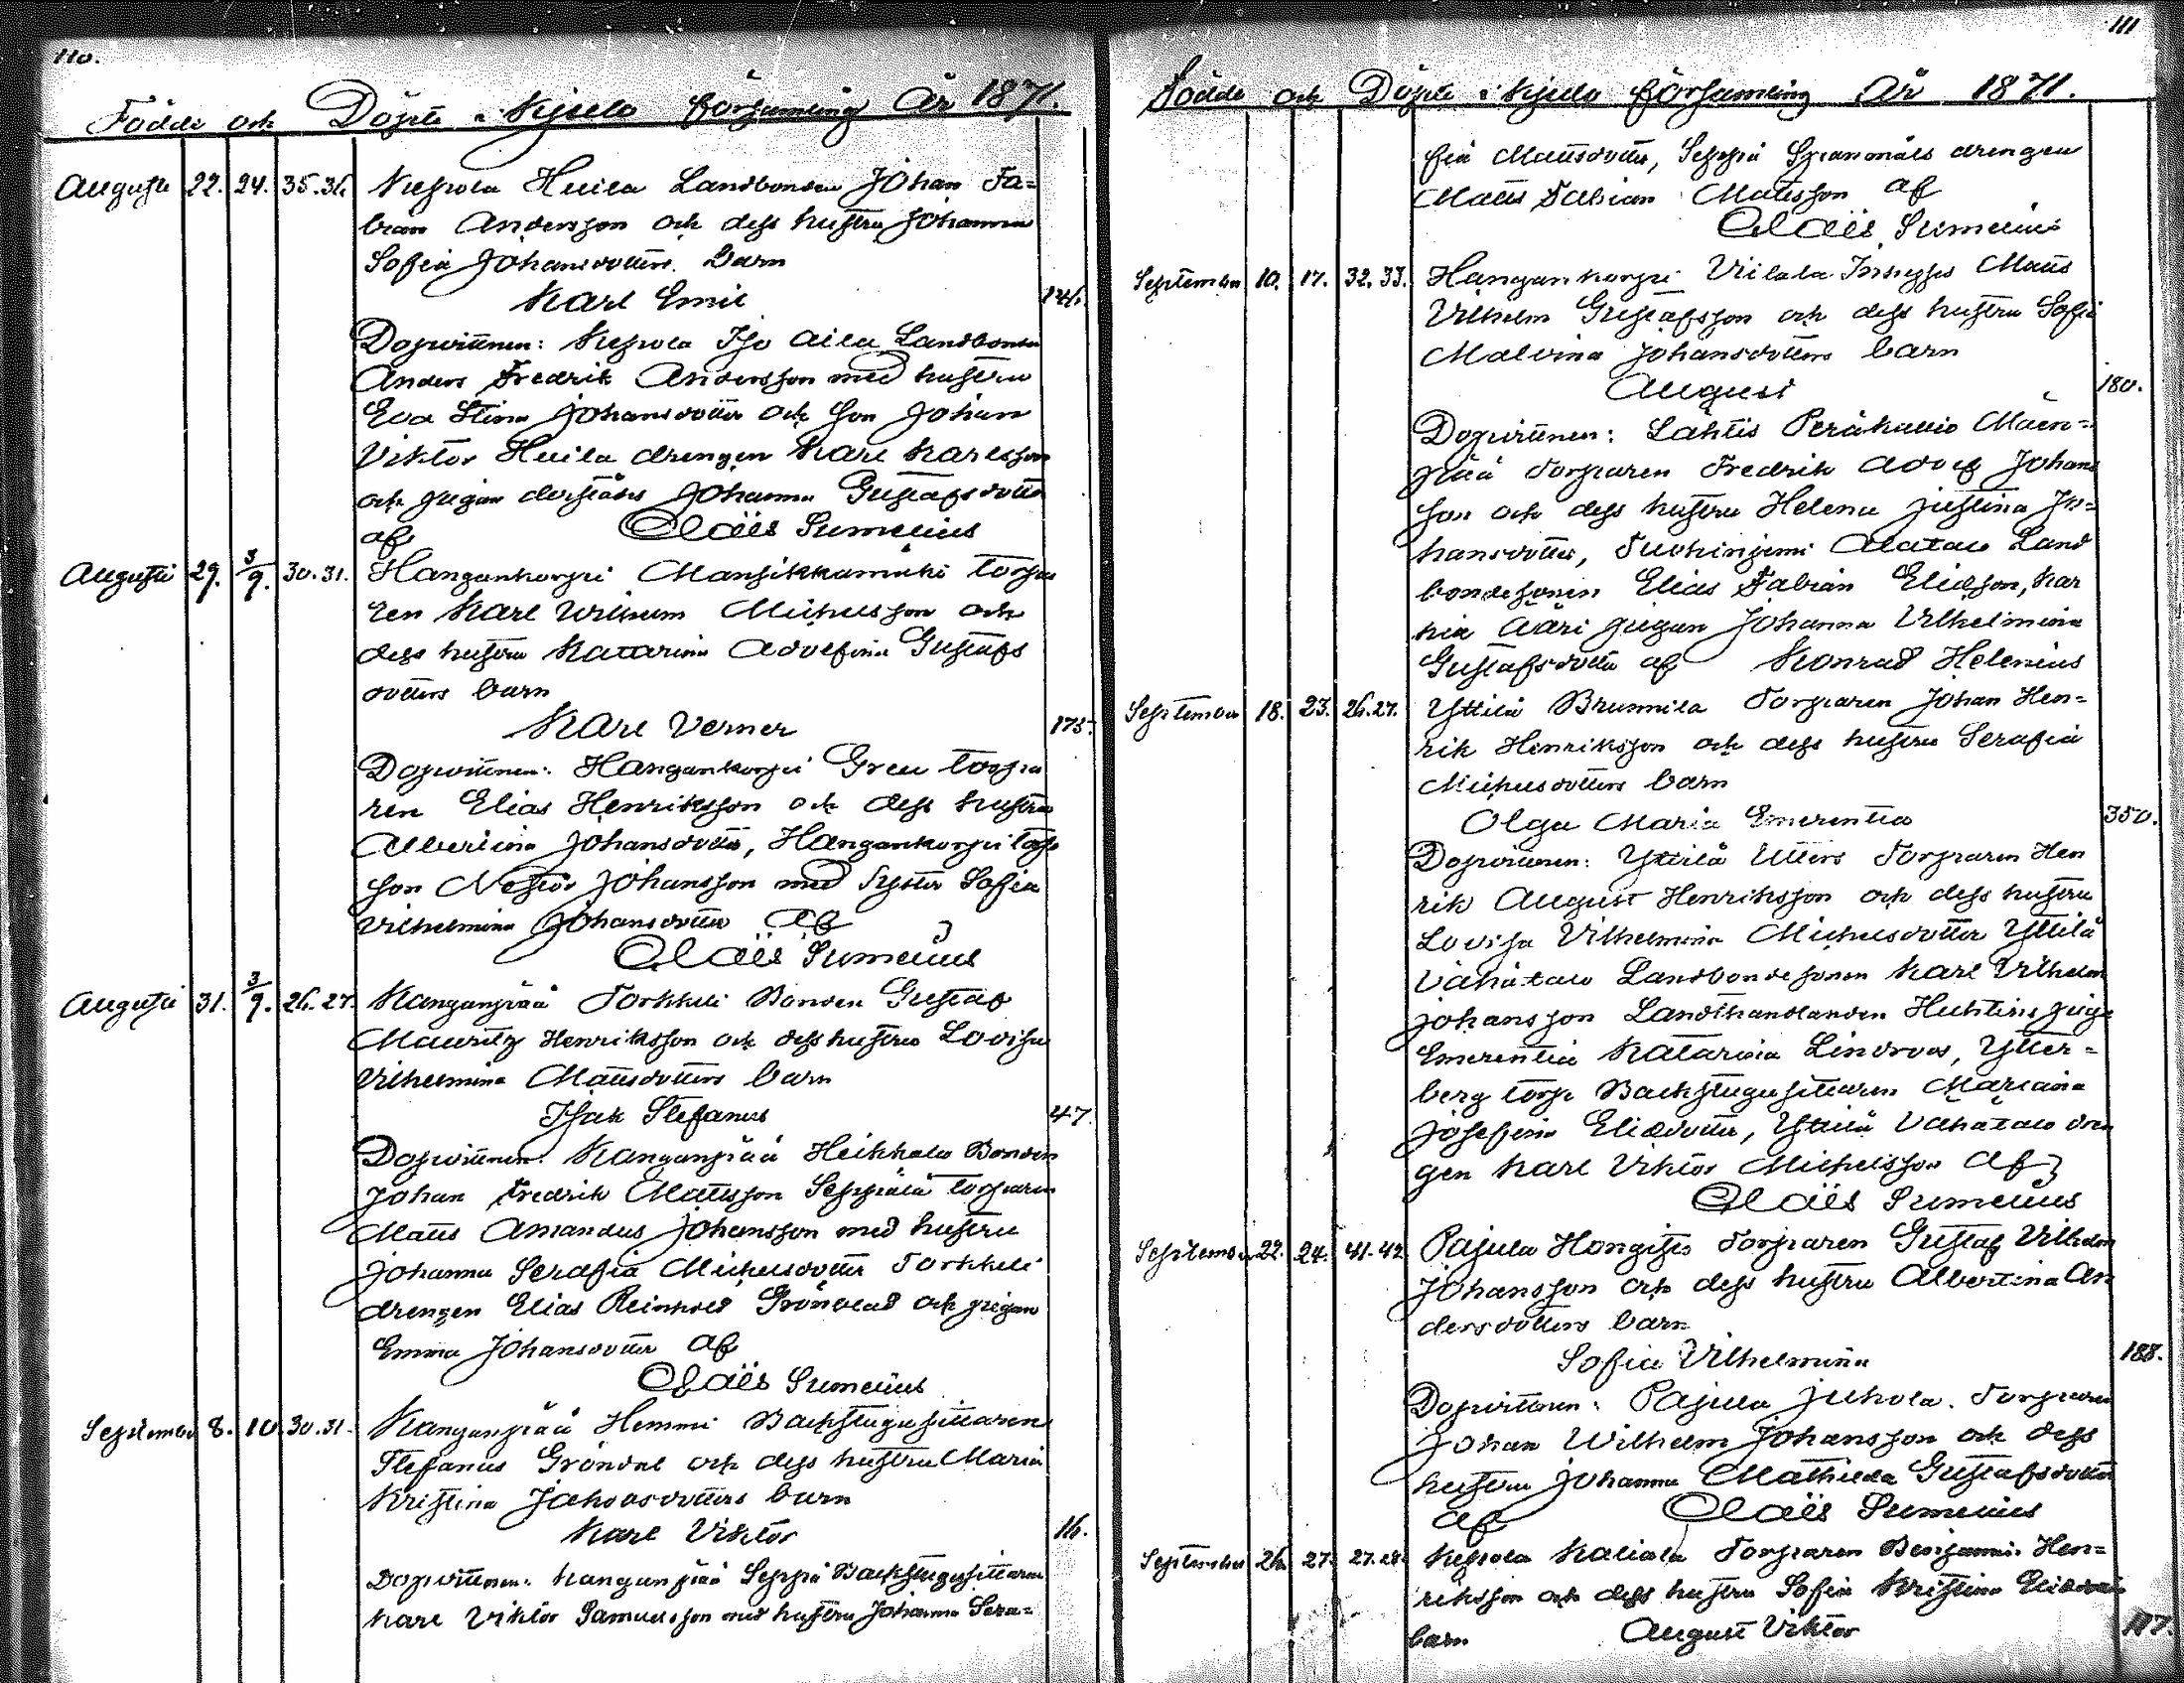 110.
Födde och Döpte i Kjulo församling År 1871.
Augusti 22. 24. 35.36. Kepola Huila Landbonden Johan Fa=
bian Andersson och dess hustru Johanna
Sofia Johansdotters barn
Karl Emil
Dopvittnen: Kepola Iso Aila Landbonden
Anders Fredrik Andersson med hustru
Eva Stina Johansdotter och son Johan
Viktor Huila drengen Karl Karlsson
och pigan Johanna Gustafsdotter
af Claës Sumelius
Augusti 29. 3/9. 30.31. Hangankorpi Mansikkamäki torpa
ren Karl Wilhelm Michelsson och
dess hustru Katarina Adolfina Gustafs
dotters barn
Karl Verner 175.
Dopvittnen: Hangankorpi torpa
ren Elias Henriksson och dess hustru
Albertina Johansdotter, Hangankorpi torp
son Nestor Johansson med syster Sofia
Vilhelmina Johansdotter af
Claës Sumelius
Augusti 31. 3/9. 26.27. Kanganpää Torkkeli Bonden Gustaf
Mauritz Henriksson och dess hustru Lovisa
Vilhelmina Mattsdotters barn
Isak Stefanus 47
Dopvittnen: Kanganpää Heikkala Bonden
Johan Fredrik Mattsson Seppälä torparen
Matts Amandus Johansson med hustru
Johanna Serafia Michelsdotter Torkkeli
drengen Elias Reinhold Grönblad och pigan
Emma Johansdotter af
Claës Sumelius
September 8. 10. 30.31. Kanganpää Hemmi Backstugusittaren
Stefanus Gröndal och dess hustru Maria
Kristina Jakobsdotters barn
Karl Viktor 16.
Dopvittnen: Kanganpää Seppä Backstugusittaren
Karl Viktor Samuelsson med hustru Johanna Sera=
111
Födde och Döpte i Kjulo församling År 1871.
fia Mattsdotter, Seppä drengen
Matts Fabian Mattsson af
Claës Sumelius
September 10. 17. 32.33. Hangankorpi Viilala Matts
Vilhelm Gustafsson och dess hustru Sofia
Malvina Johansdotters barn
August 180.
Dopvittnen: Lahtis Peräkallio Mäen=
pää Torparen Fredrik Adolf Johans
son och dess hustru Helena Justina Jo=
hansdotter, Tuohiniemi Alatalo Land
bondesonen Elias Fabian Eliasson, Kar
hia Ääri pigan Johanna Vilhelmina
Gustafsdotter af Konrad Helenius
September 18. 23. 26.27. Yttilä Brunnila Torparen Johan Hen=
rik Henriksson och dess hustru Serafia
Michelsdotters barn
Olga Maria Emerentia 350.
Dopvittnen: Yttilä Torparen Hen
rik August Henriksson och dess hustru
Lovisa Vilhelmina Michelsdotter Yttilä
Vähätalo Landbondesonen Karl Vilhelm
Johansson Landthandlanden Huhtins piga
Emerentia Katarina Lindroos, Ytter=
berg torp Backstugusittaren Mariana
Josefina Eliedotter, Yttilä Vähätalo dren
gen Karl Viktor Michelsson af
Claës Sumelius
September 22. 24. 41.42. Pajula Hongisto Torparen Gustaf Vilhelm
Johansson och dess hustru Albertina An
dersdotters barn
Sofia Vilhelmina 188.
Dopvittnen: Pajula Juhola Torparen
Johan Wilhelm Johansson och dess
hustru Johanna Mathilda Gustafsdotter
af Claës Sumelius
September 26. 27. 27.28. Kepola Kaliala Torparen Benjamin Hen=
riksson och dess hustru Sofia Kristina
barn August Viktor